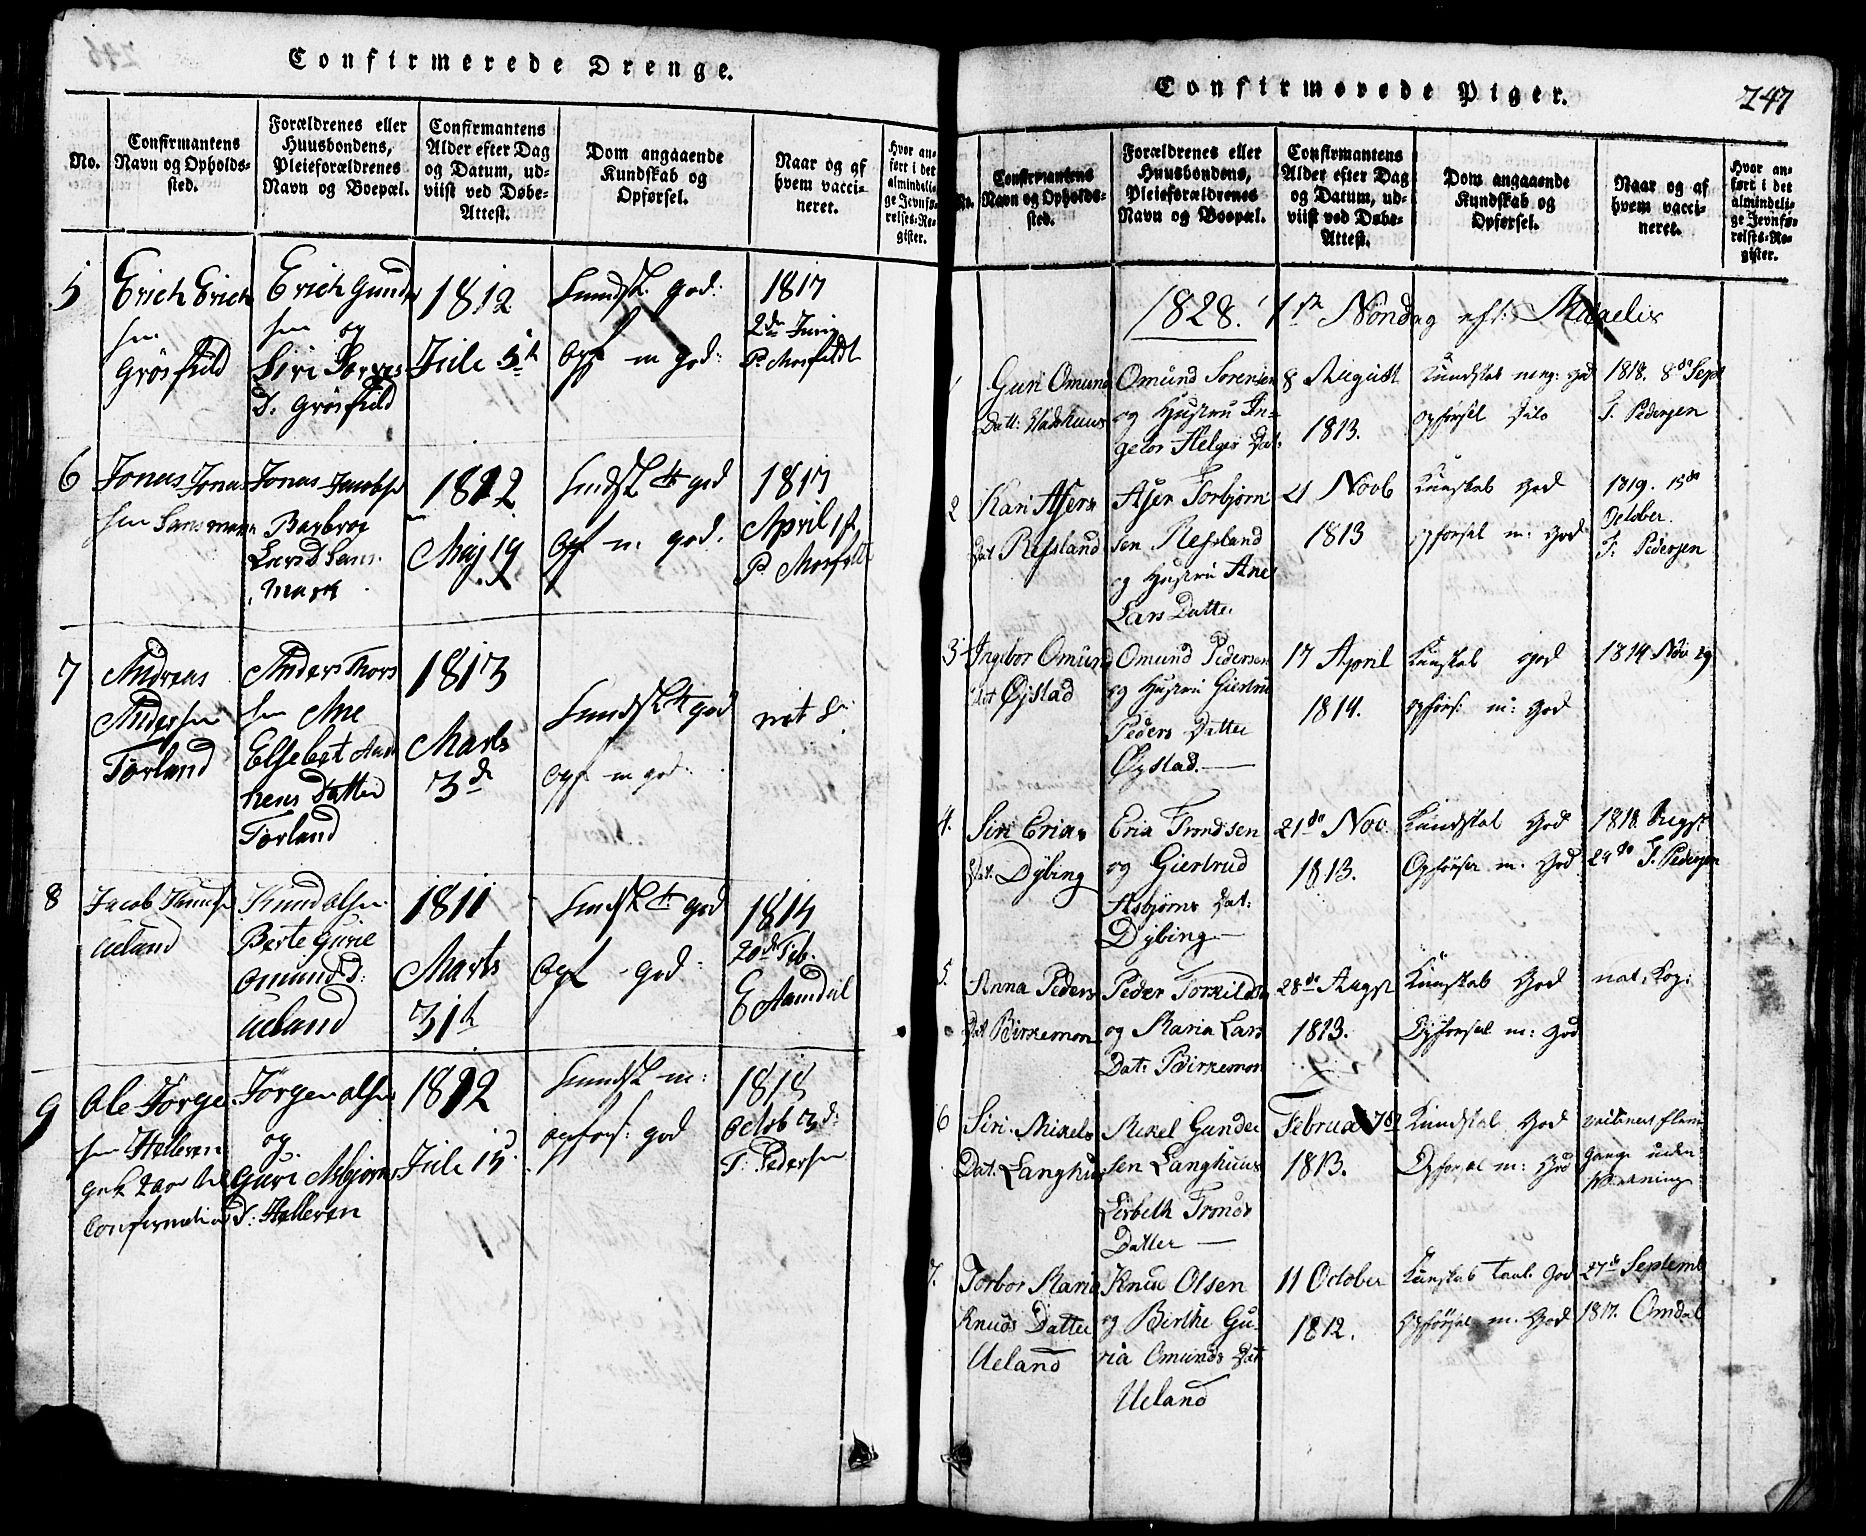 Confirmerede Drenge.
No.
Confirmantens
Navn og Opholds-
sted.
Forældrenes eller
Huusbondens,
Pleieforældrenes
Navn og Boepæl.
Confirmantens
Alder efter Dag
og Datum, ud-
viist ved Døbe-
Attest.
Dom angaaende
Kundskab og
Opførsel.
Naar og af
hvem vacci-
neret.
Hvor an-
ført i det
almindeli-
ge Jevnfø-
relses-Re-
gister.
5
Erich Erich
sen
Grösfield
Erich Gunder
sen og
Siri Torres
D. Grösfield
1812
Jule 5t
Kundsk. god:
Opf m god:
1817
2den Juni
P. Mosfeldt
6
Jonas Jonas
sen Sansmark
Jonas Jacobse
Barbroe
Sans
mark
1812
Maj 19
Kundsk god
Opf m. god.
1817
April 1st
P. Mosfeldt
7
Andreas
Andersen
Torland
Anders Thors
sen Ane
Elsebet
kens Datter
Torland
1813
Marts
3d
Kundsk god
Opf m god:
8
Jacob Knuds
ueland
Knud olsen
Berte gurie
omund d:
ueland
1811
Marts
31t
Kundsk god
Opf god:
1815
20de Feb.
E Aamdal
9
Ole Jörgen
sen Helleren
gik 2 aar til
Confirmation
Jörgen olsen
og
guri Asbjörns
D: Helleren
1812
Jule 15
Kundsk m:
opførs: god
1818
Octob 3d:
T: Pedersen
Confirmerede Piger.
247
No.
Confirmantens
Navn og Opholds-
sted.
Forældrenes eller
Huusbondens,
Pleieforældrenes
Navn og Boepæl.
Confirmantens
Alder efter Dag
og Datum, ud-
viist ved Døbe-
Attest.
Dom angaaende
Kundskab og
Opførsel.
Naar og af
hvem vacci-
neret.
Hvor an-
ført i det
almindeli-
ge Jevnfø-
relses-Re-
gister.
1828. 1ste Söndag eft: Micaelis
1
Guri Omund
Datt:
Omund Sorensen
og Hustru In=
gebor Helges Dat:
8 August
1813.
Kundskab meg: god
Opførsel
1818. 8de Sept
T. Pedersen
2
Kari Asers
Dat Refsland
Aser Torbjörn
sen Refsland
og Hustru Ane
Lars Datter
21 Novb
1813
Kunskab God
opforsel m: God
1819. 15de
October.
T. Pedersen
3
Ingebor Omund
dat Öjstad
Omund Pedersen
og Hustru Giertru
Peders Datter
Öystad.—
17 April
1814.
Kunskab god
opførs: m: God
1814 Nov 29
4.
Siri Erias
Dat: Dÿbing
Eria Trondsen
og Giertrud
Asbjörns Dat:
Dÿbing—
21de Nov.
1813.
Kundskab God
Opförsel m: God
1818. Augst
29de T. Pedersen
5.
Anna Peders
Dat Birkemon
Peder Torkilds
og Maria Lars
Dat: Birkemon
28de Augst
1813.
Kunskab God
Opforsel m: God
nat. Kop:
6
Siri. Mikels
Dat. Langhuus
Mikel Gunder
sen Langhuus
Lisbeth Tronds
Datter —
Februar 7de
1813.
Kundskab God
Opforsel m: God
vacineret flere
gange uden
Virkning
7.
Torbor Maria
Knuds Datter
Ueland
Knud Olsen
og Birthe Gu-
ria Omunds Dat
Ueland
11 October
1812.
Kunskab taal. God
Opførsel m. God
27de Septemb
1817. Omdal